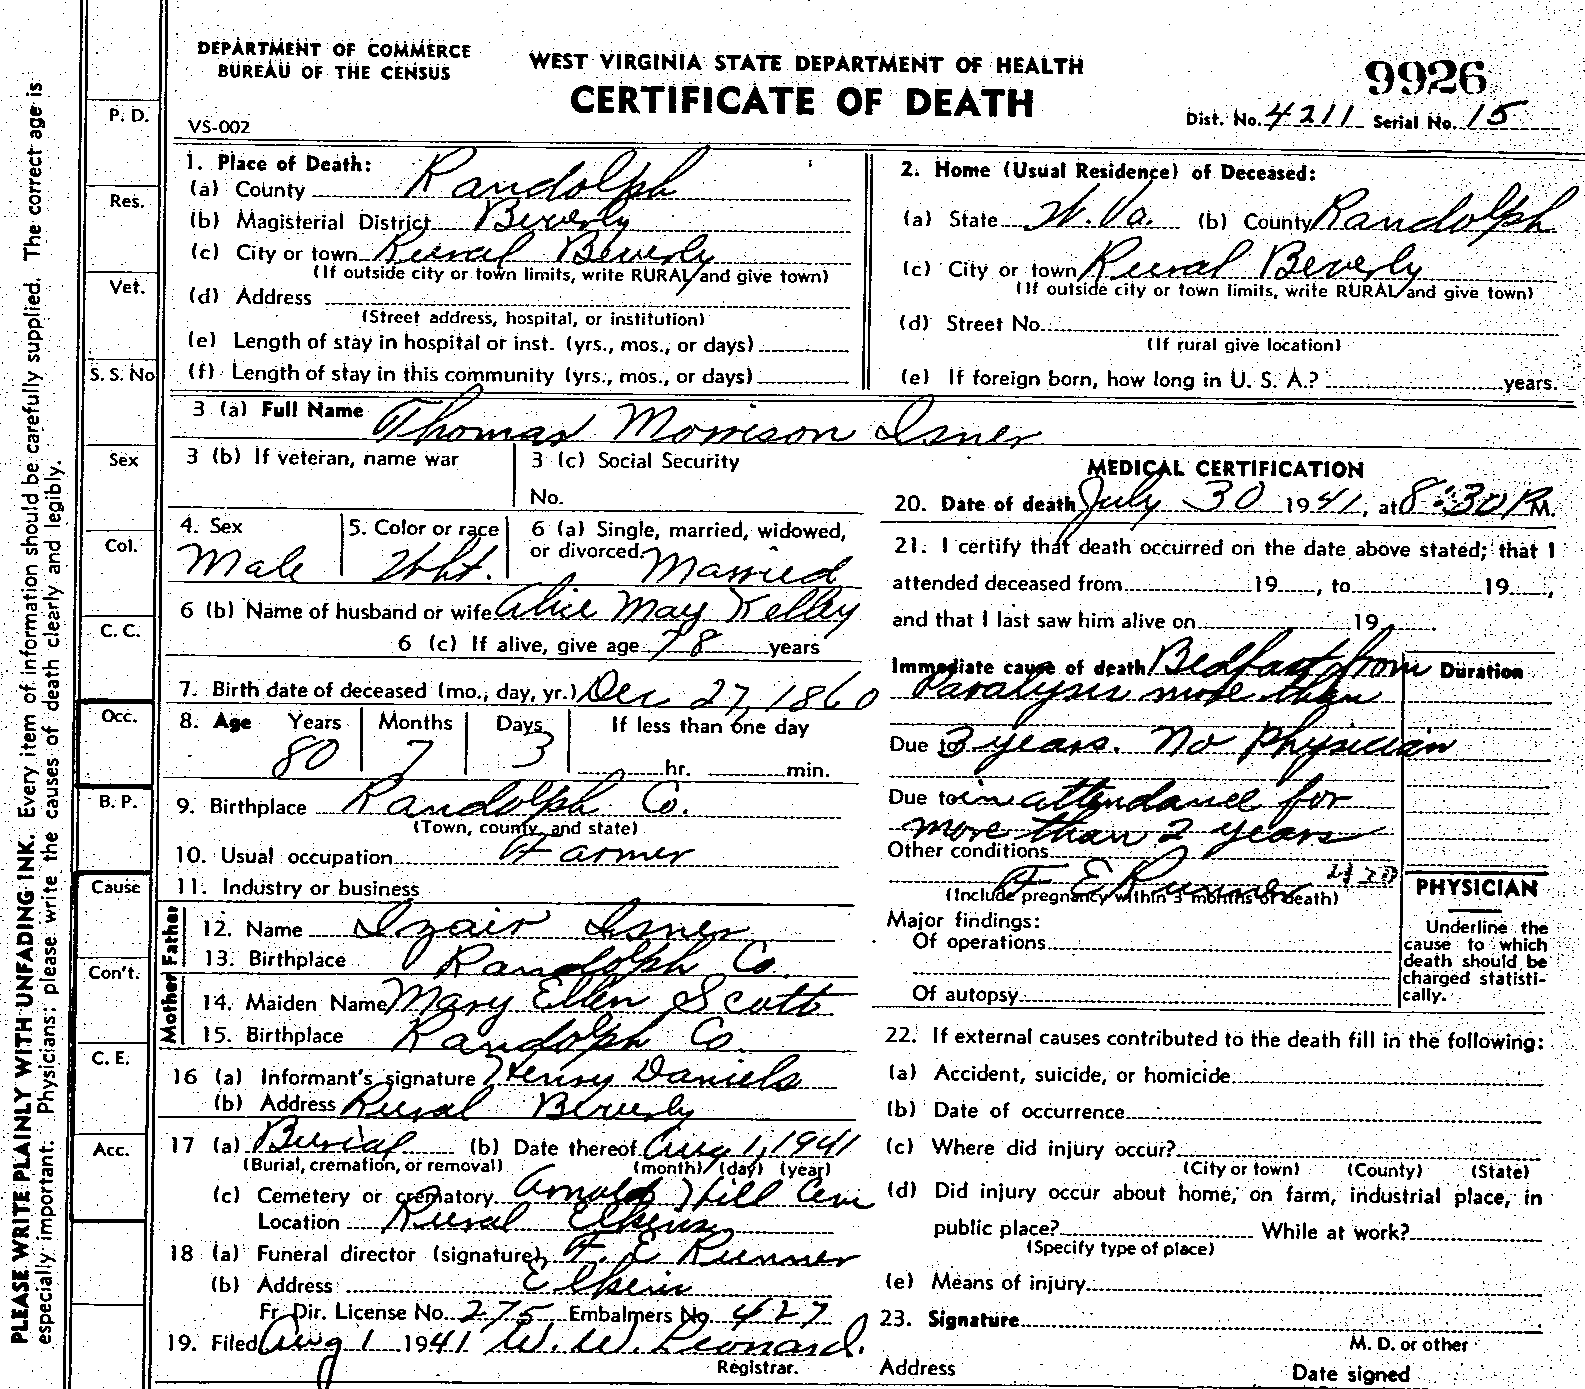 DEPARTMENT OF COMMERCE
BUREAU OF THE CENSUS
VS-002
WEST VIRGINIA STATE DEPARTMENT OF HEALTH
CERTIFICATE OF DEATH
9926
Dist. No. 4211 Serial No. 15
1. Place of Death:
(a) County Randolph
(b) Magisterial District Beverly
(c) City or town Rural Beverly
(If outside city or town limits, write RURAL and give town)
(d) Address
(Street address, hospital, or institution)
(e) Length of stay in hospital or inst. (yrs., mos., or days)
(f) Length of stay in this community (yrs., mos., or days)
2. Home (Usual Residence) of Deceased:
(a) State W. Va. (b) County Randolph
(c) City or town Rural Beverly
(If outside city or town limits, write RURAL and give town)
(d) Street No.
(If rural give location)
(e) If foreign born, how long in U. S. A.? years.
3 (a) Full Name Thomas Morrison Isner
3 (b) If veteran, name war
3 (c) Social Security
No.
4. Sex Male
5. Color or race Wht.
6 (a) Single, married, widowed,
or divorced. Married
6 (b) Name of husband or wife Alice May Kelley
6 (c) If alive, give age 78 years
7. Birth date of deceased (mo., day, yr.) Dec 27, 1860
8. Age Years Months Days If less than one day
80 7 3 hr. min.
9. Birthplace Randolph Co.
(Town, county, and state)
10. Usual occupation Farmer
11. Industry or business
Father
12. Name Izair Isner
13. Birthplace Randolph Co.
Mother
14. Maiden Name Mary Ellen Scott
15. Birthplace Randolph Co.
16 (a) Informant's signature Henry Daniels
(b) Address Rural Beverly
17 (a) Burial (b) Date thereof Aug 1, 1941
(Burial, cremation, or removal) (month) (day) (year)
(c) Cemetery or crematory Arnold Hill Cem
Location Rural Elkins
18 (a) Funeral director (signature) F. E Runner
(b) Address Elkins
Fr. Dir. License No. 275 Embalmers No. 427
19. Filed Aug 1 1941 W. W. Leonard.
Registrar.
MEDICAL CERTIFICATION
20. Date of death July 30 1941, at 8:30 P M.
21. I certify that death occurred on the date above stated; that I
attended deceased from 19 , to 19 ,
and that I last saw him alive on 19
Immediate cause of death Bedfast from
Duration
Paralysis more than
Due to 3 years. No Physician
Due to in attendance for
more than 2 years
Other conditions
F E Runner
(Include pregnancy within 3 months of death)
Major findings:
Of operations
Of autopsy
PHYSICIAN
Underline the
cause to which
death should be
charged statisti-
cally.
22. If external causes contributed to the death fill in the following:
(a) Accident, suicide, or homicide
(b) Date of occurrence
(c) Where did injury occur?
(City or town) (County) (State)
(d) Did injury occur about home, on farm, industrial place, in
public place? While at work?
(Specify type of place)
(e) Means of injury
23. Signature
M. D. or other
Address Date signed
PLEASE WRITE PLAINLY WITH UNFADING INK. Every item of information should be carefully supplied. The correct age is
especially important. Physicians: please write the causes of death clearly and legibly.
P. D.
Res.
Vet.
S. S. No
Sex
Col.
C. C.
Occ.
B. P.
Cause
Con't.
C. E.
Acc.